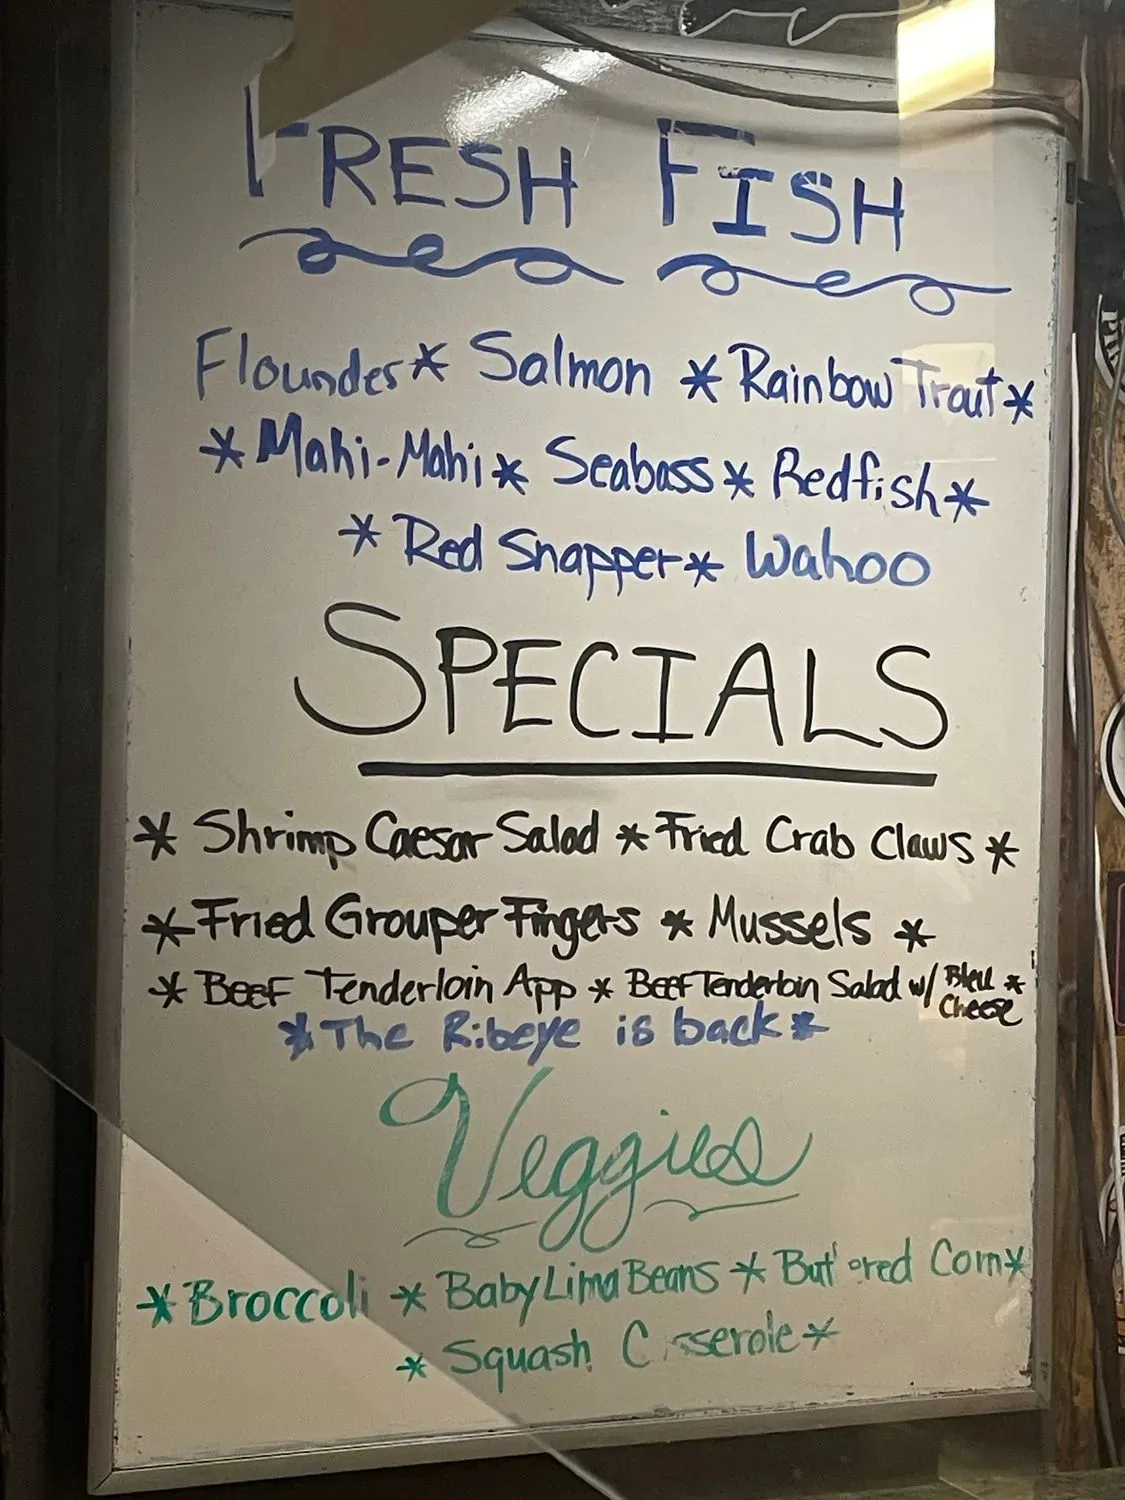 FRESH FISH
Flounder * Salmon * Rainbow Trout *
* Mahi-Mahi * Seabass * Redfish *
* Red Snapper * Wahoo
SPECIALS
* Shrimp Caesar Salad * Fried Crab Claws *
* Fried Grouper Fingers * Mussels *
* Beef Tenderloin App * Beef Tenderloin Salad w/ Bleu Cheese *
* The Ribeye is back *
Veggies
* Broccoli * Baby Lima Beans * But ered Corn *
* Squash C sserole *